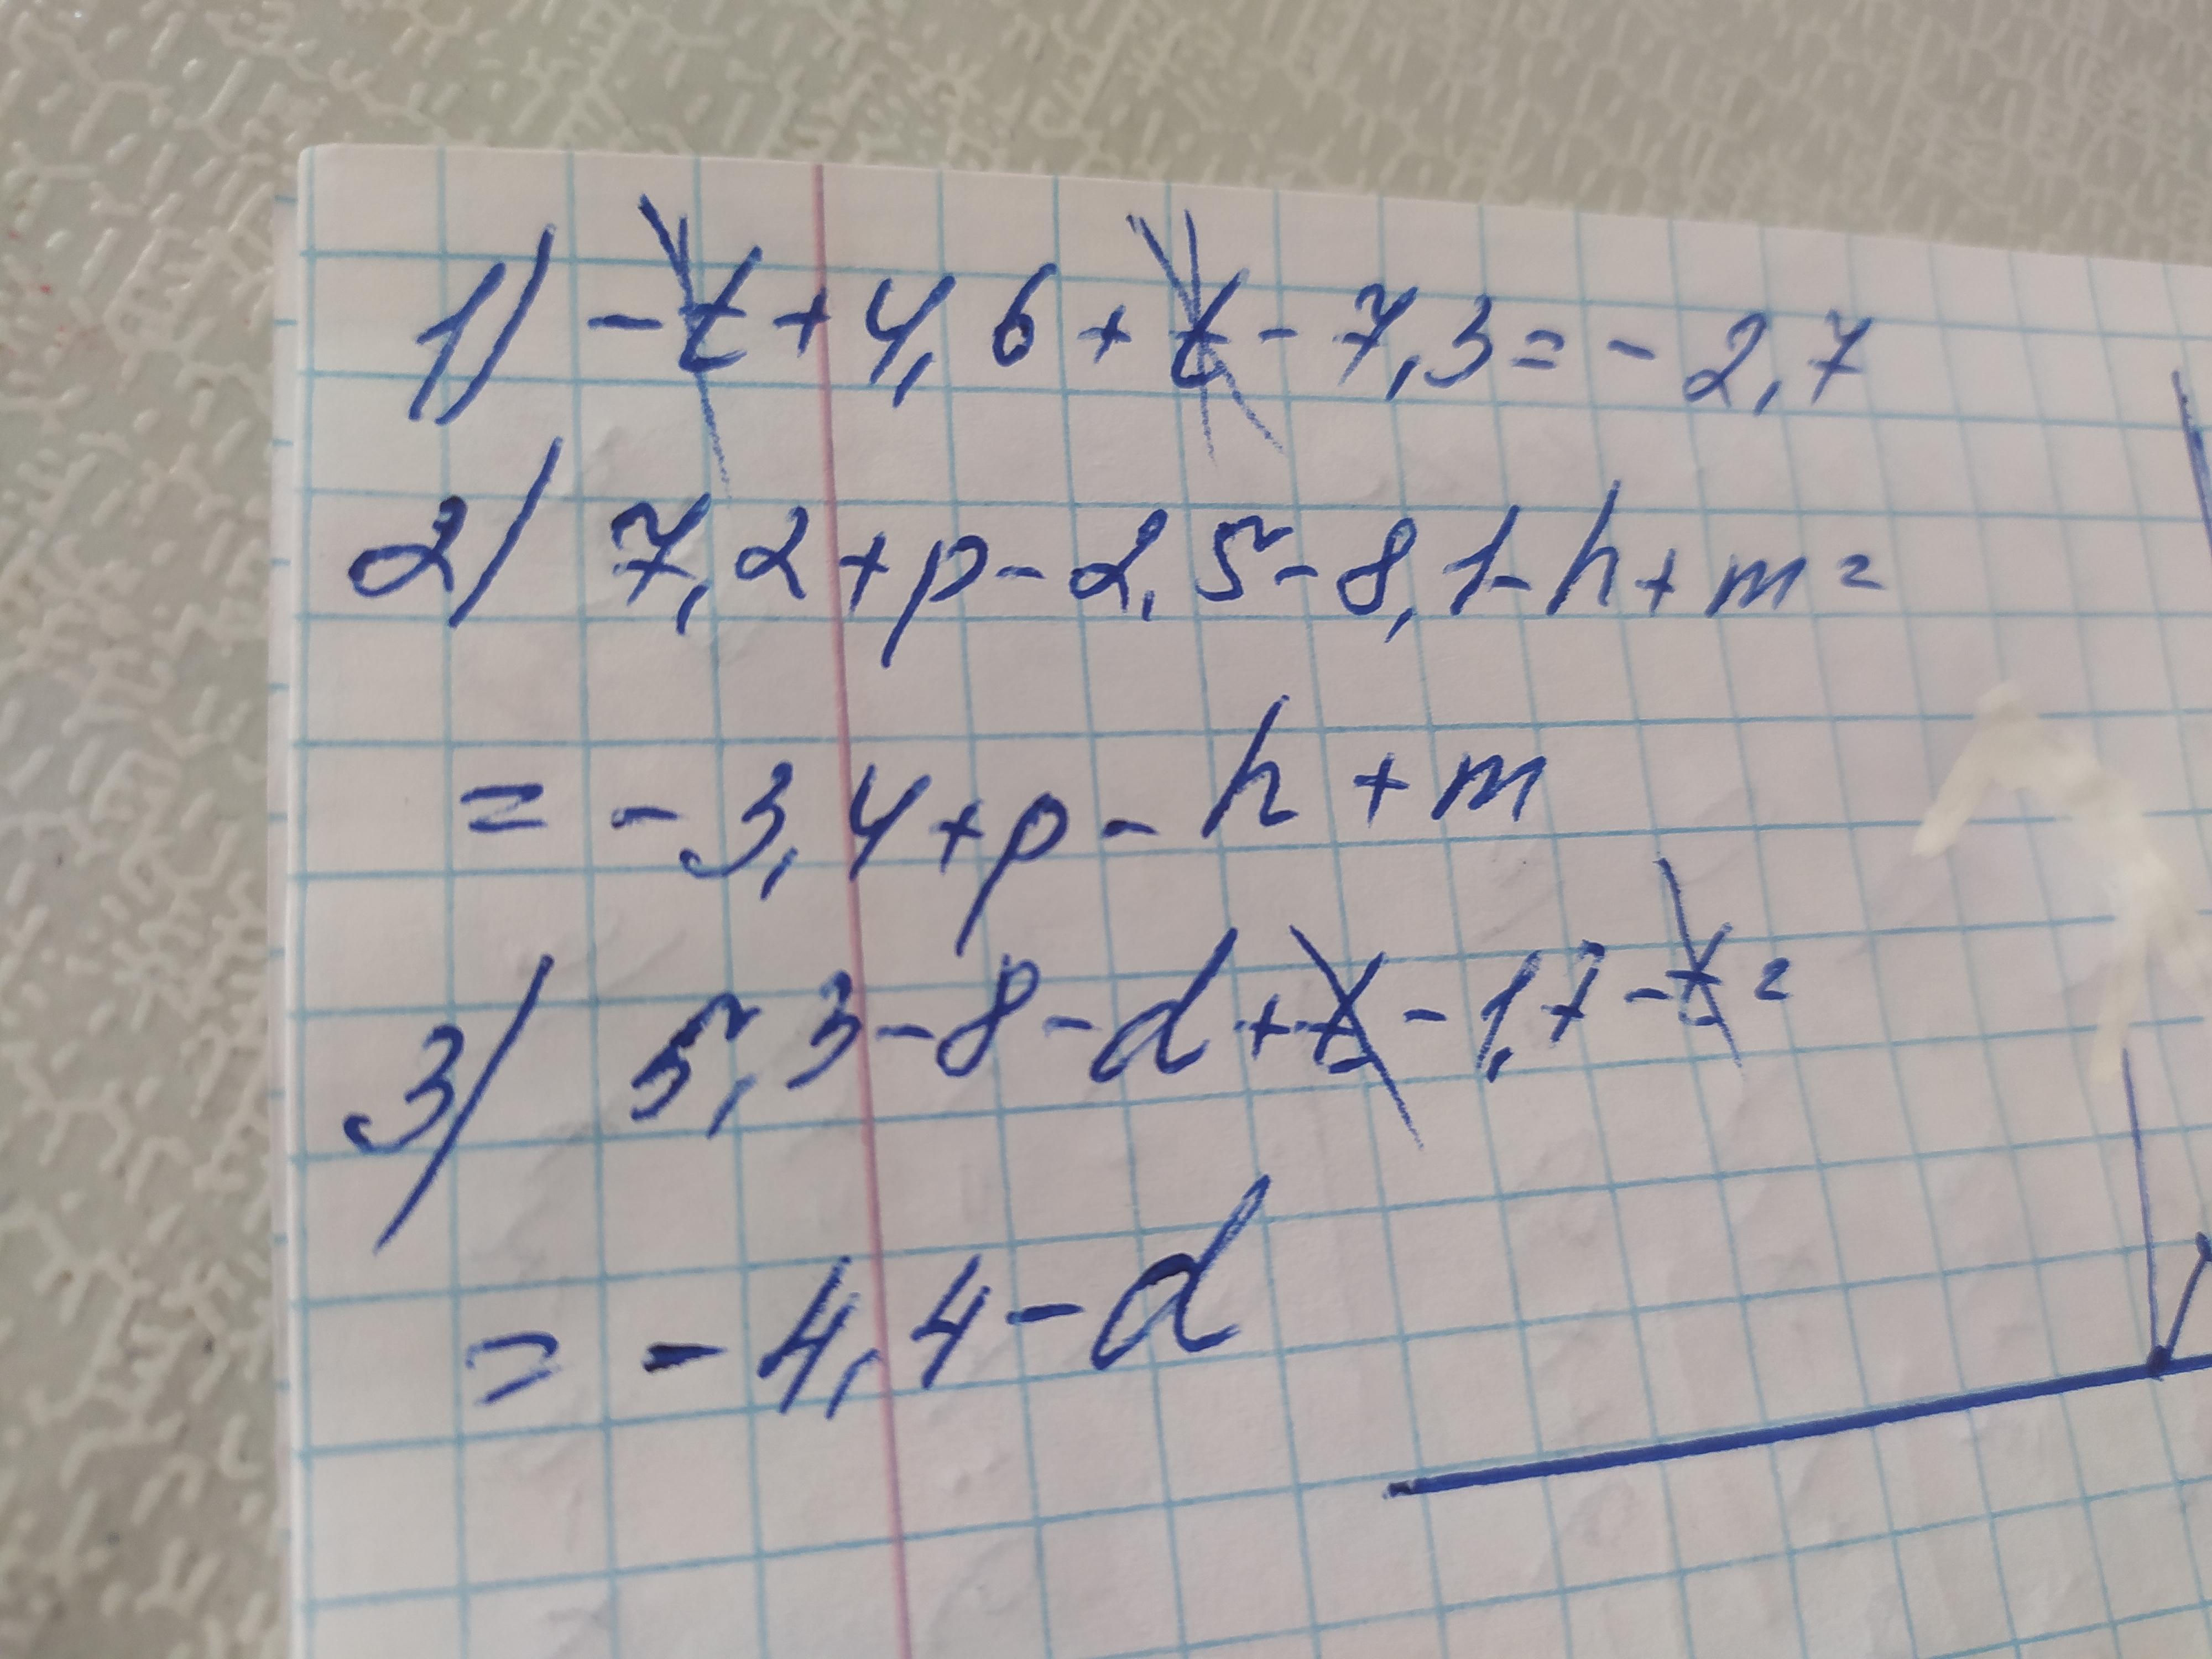 1) -t+4,6+t-7,3=-2,7
2) 7,2+p-2,5-8,1-h+m=
=-3,4+p-h+m
3) 5,3-8-d+t-1,7-t=
=-4,4-d